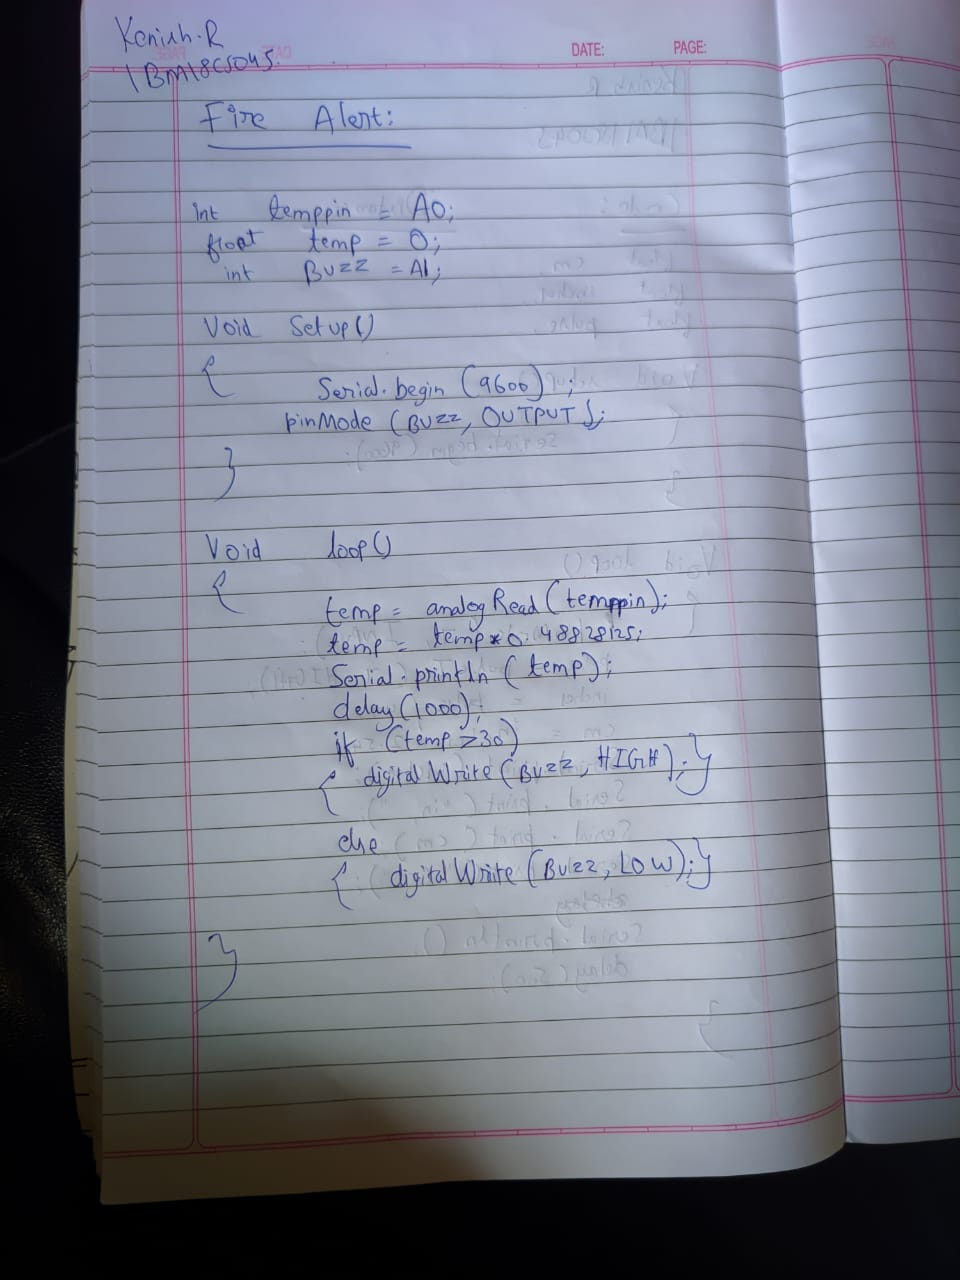 Kenish.R
1BM18CS045.
DATE: PAGE:
Fire Alert:
int temppin = A0;
float temp = 0;
int Buzz = A1;
Void Setup()
{ Serial.begin (9600);
pinMode (Buzz, OUTPUT);
}
Void loop()
{
temp = analogRead (temppin);
temp = temp*0.48828125;
Serial.println (temp);
delay(1000);
if (temp >30)
{ digitalWrite (Buzz, HIGH);}
else
{ digitalWrite (Buzz, LOW);}
}